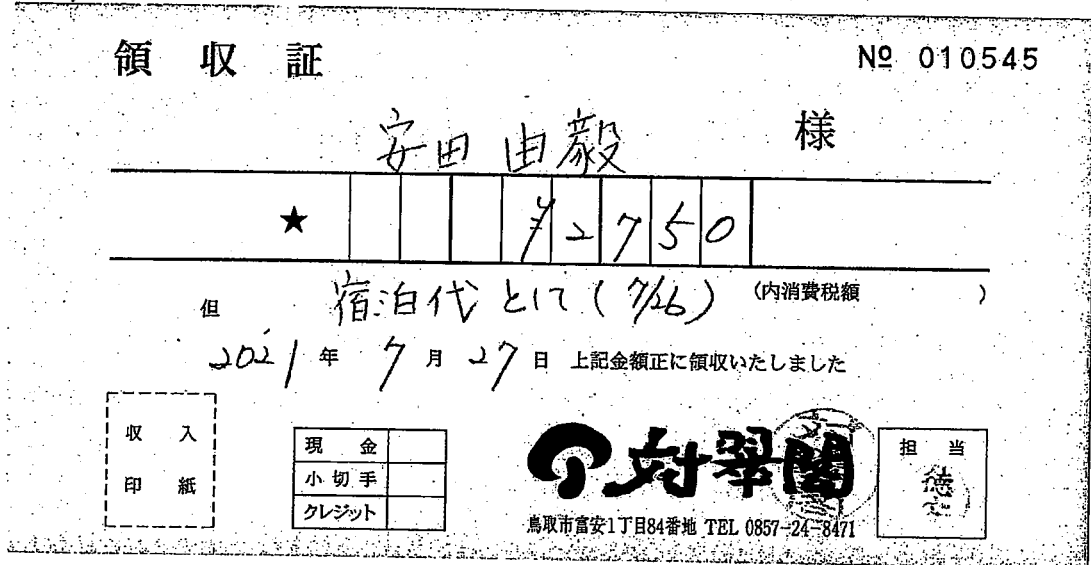 領収証 № 010545
安田 由毅 様
★ ¥2750
但 宿泊代として(7/26) (内消費税額 )
2021年 7月27日 上記金額正に領収いたしました
収入
印紙
現金
小切手
クレジット
対翠閣
鳥取市富安1丁目84番地 TEL 0857-24-8471
担当